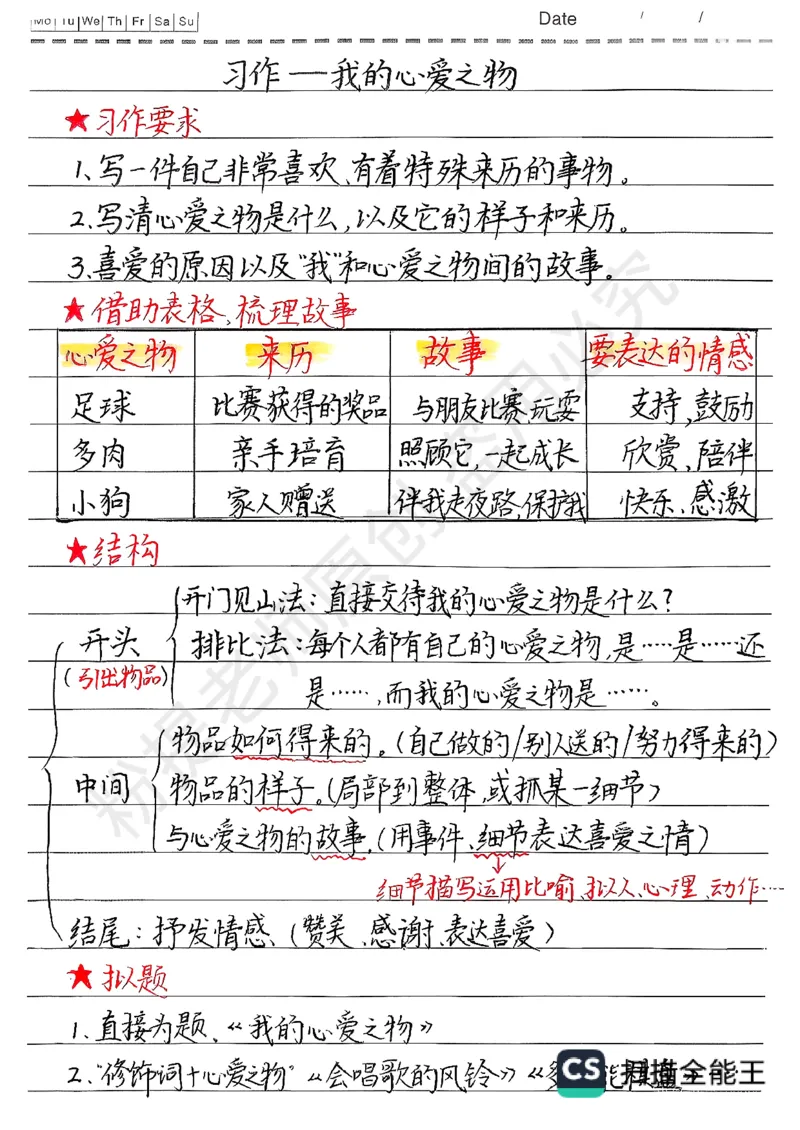 Mo Tu We Th Fr Sa Su Date / /
习作——我的心爱之物
★习作要求
1、写一件自己非常喜欢、有着特殊来历的事物。
2、写清心爱之物是什么,以及它的样子和来历。
3、喜爱的原因以及"我"和心爱之物间的故事。
★借助表格,梳理故事
心爱之物 来历 故事 要表达的情感
足球 比赛获得的奖品 与朋友比赛、玩耍 支持,鼓励
多肉 亲手培育 照顾它,一起成长 欣赏,陪伴
小狗 家人赠送 伴我走夜路,保护我 快乐、感激
★结构
开门见山法:直接交待我的心爱之物是什么?
开头 排比法:每个人都有自己的心爱之物,是……是……还
(引出物品) 是……,而我的心爱之物是……。
物品如何得来的。(自己做的/别人送的/努力得来的)
中间 物品的样子。(局部到整体,或抓某一细节)
与心爱之物的故事.(用事件、细节表达喜爱之情)
细节描写运用比喻、拟人、心理、动作……
结尾:抒发情感、(赞美、感谢、表达喜爱)
★拟题
1.直接为题、《我的心爱之物》
2."修饰词+心爱之物"《会唱歌的风铃》《多
CS 扫描全能王
粉提老师原创 盗用必究